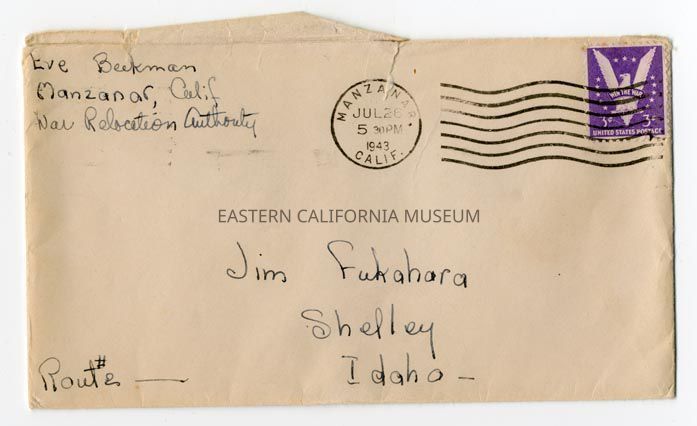 Eve Beekman
Manzanar, Calif
War Relocation Authority
MANZANAR,
JUL 26
5 30PM
1943
CALIF.
WIN THE WAR
3¢ 3¢
UNITED STATES POSTAGE
EASTERN CALIFORNIA MUSEUM
Jim Fukahara
Shelley
Idaho -
Route # —